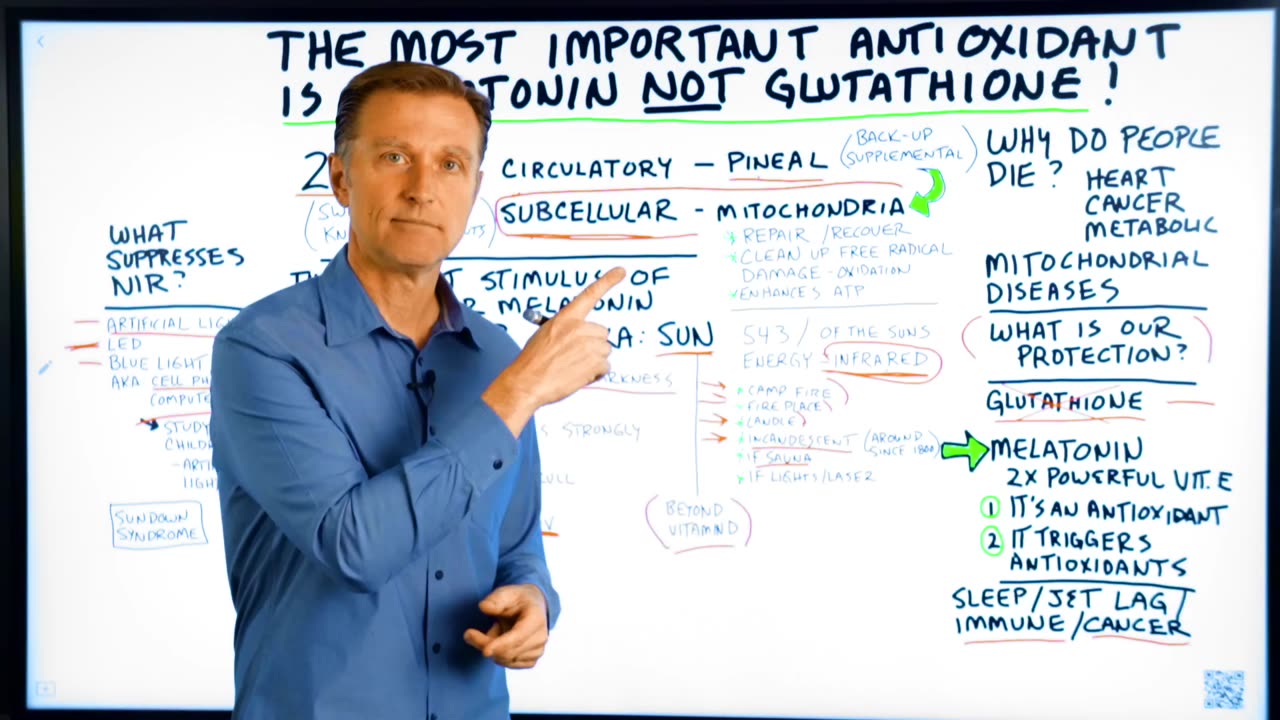 THE MOST IMPORTANT ANTIOXIDANT
IS TONIN NOT GLUTATHIONE!
2
CIRCULATORY - PINEAL
(BACK-UP
SUPPLEMENTAL)
SUBCELLULAR - MITOCHONDRIA
REPAIR/RECOVER
CLEAN UP FREE RADICAL
DAMAGE - OXIDATION
ENHANCES ATP
STIMULUS OF
MELATONIN
SUN
543/ OF THE SUNS
ENERGY - INFRARED
CAMP FIRE
FIRE PLACE
CANDLE
INCANDESCENT (AROUND
SINCE 1800)
IF SAUNA
IF LIGHTS/LASER
S STRONGLY
(BEYOND
VITAMIN D)
WHAT
SUPPRESSES
NIR?
ARTIFICIAL LIG
LED
BLUE LIGHT
AKA CELL PH
COMPUTE
STUDY
CHILD
-ARTI
LIGH
SUNDOWN
SYNDROME
WHY DO PEOPLE
DIE? HEART
CANCER
METABOLIC
MITOCHONDRIAL
DISEASES
(WHAT IS OUR
PROTECTION?)
GLUTATHIONE
MELATONIN
2X POWERFUL VIT. E
1 IT'S AN ANTIOXIDANT
2 IT TRIGGERS
ANTIOXIDANTS
SLEEP/JET LAG/
IMMUNE/CANCER